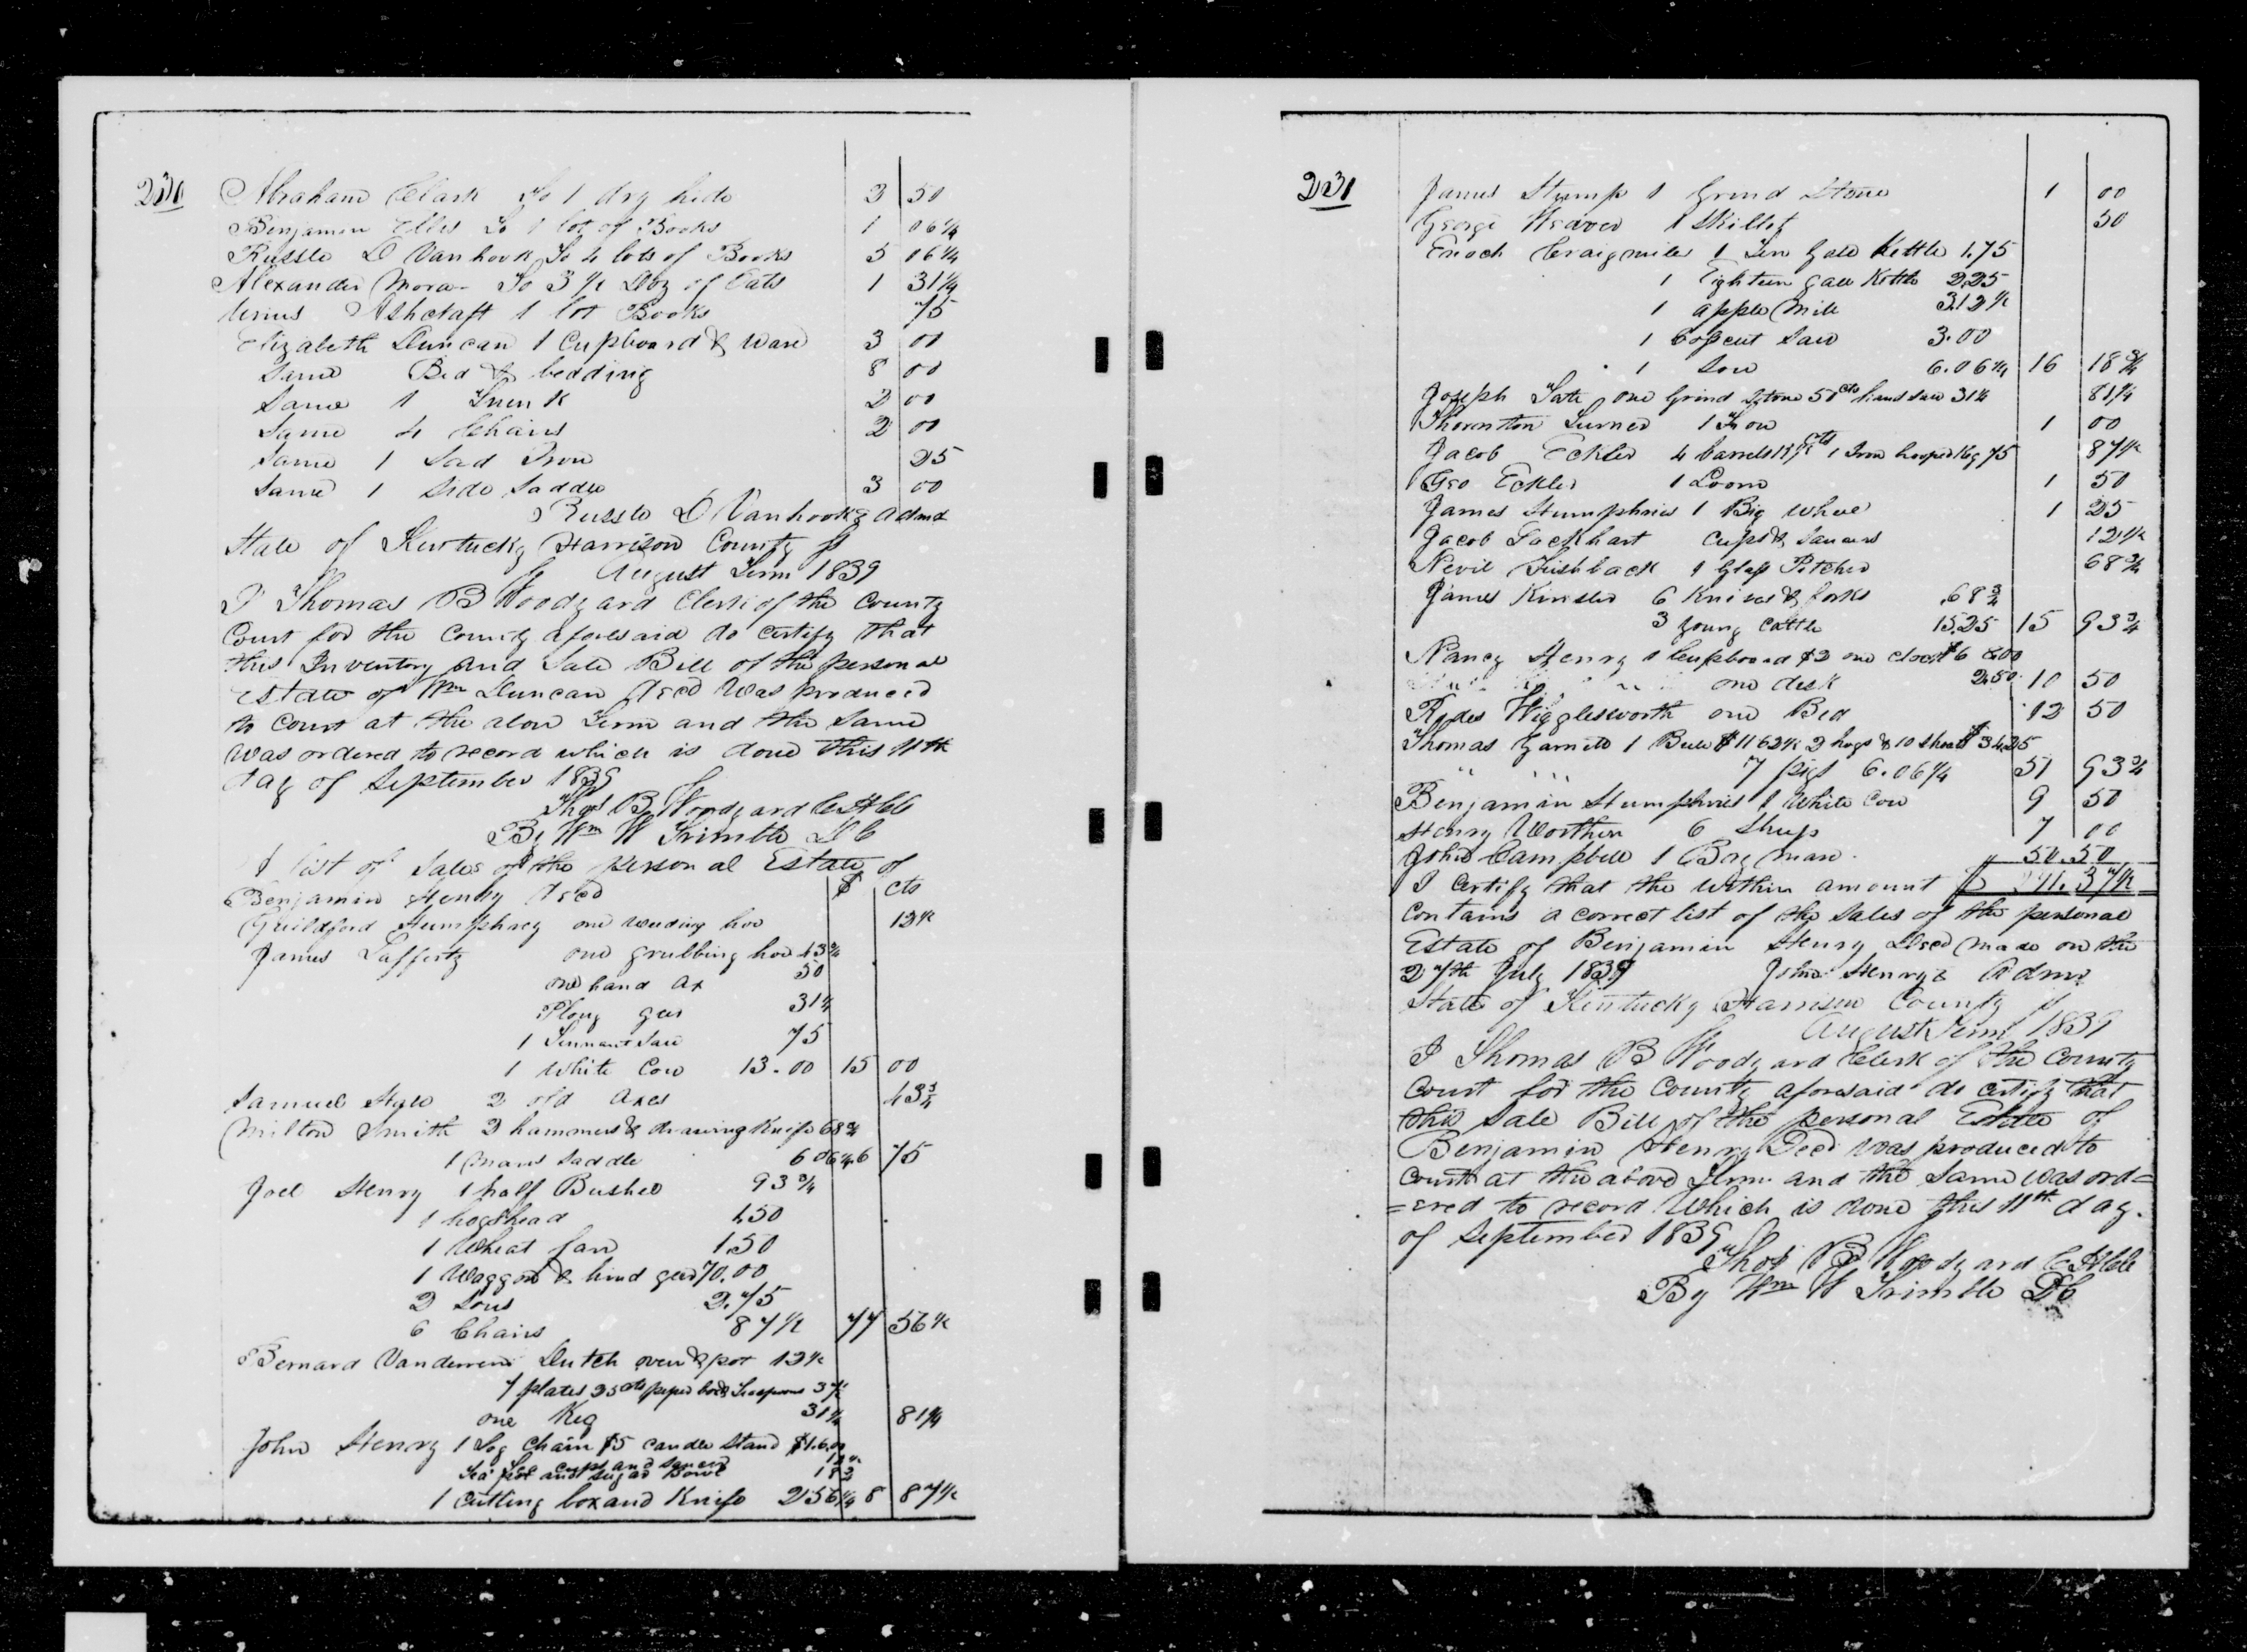 230
Abraham Clark To 1 dry hide 3 50
Benjamin Elles To 1 lot of Books 1 06¼
Russle D Vanhook To 4 lots of Books 5 06¼
Alexander Mora- To 3½ Doz of Oats 1 31¼
Ashcraft 1 lot Books 75
Elizabeth Duncan 1 Cupboard & ware 3 00
Same Bed & bedding 8 00
Same 1 Trunk 2 00
Same 4 Chairs 2 00
Same 1 Sad Iron 25
Same 1 Side Saddle 3 00
Russle D Vanhook Admr
State of Kentucky Harrison County
August Term 1839
I Thomas B Woodyard Clerk of the County
Court for the County aforesaid do certify that
this Inventory and Sale Bill of the personal
estate of Wm Duncan decd Was produced
to Court at the above Term and the Same
was ordered to record which is done this 11th
day of September 1839
Thos B Woodyard
By Wm W Trimble D C
A list of Sales of the personal Estate of
Benjamin Henry decd $ cts
Guildford Humphrey one weeding hoe 12½
James Lafferty one grubbing hoe 43¾
one hand ax 50
Ploug gear 31¼
1 Tennant Saw 75
1 White Cow 13.00 15 00
Samuel 2 old Axes 43¾
Milton Smith 2 hammers & drawing Knife 68¾
1 Mans Saddle 6 06¼ 6 75
Joel Henry 1 half Bushel 93¾
1 hogshead .50
1 Wheat fan 1.50
1 Waggon & hind gear 70.00
2 Sows 2.75
6 Chairs 87½ 77 56½
Bernard Vanderen Dutch oven & pot 12½
7 plates 25 cts peper box & Teaspoons 37½
one Keg 31¼ 81¼
John Henry 1 Log Chain $5 candle Stand $1. 6.00
cups and saucers 12½
Tea pot and sugar Bowl 18¾
1 Cutting box and Knife 2 56¼ 8 87½
231
James Stump 1 Grind Stone 1 00
George Weaver 1 Skillet 50
Enoch Craigmiles 1 Ten Gall Kettle 1.75
1 Eighteen gall Kettle 2.25
1 apple Mill 3.12½
1 Croscut Saw 3.00
1 Sow 6.06¼ 16 18¾
Joseph Tate one Grind Stone 50 cts hand saw 31¼ 81¼
Thornton Turner 1 1 00
Jacob Eckler 4 barrels 12½ cts 1 Iron hooped Keg 75 87½
Geo Eckler 1 Loom 1 50
James Humphries 1 Big Wheel 1 25
Jacob Lockhart Cups & Saucers 12½
Nevil Fishback 1 Glass Pitcher 68¾
James Kinsler 6 Knives & forks .68¾
3 young Cattle 15.25 15 93¾
Nancy Henry 1 Cupboard $2 one clock $6 8.00
one desk 2.50 10 50
Rodes Wigglesworth one Bed 12 50
Thomas Garnett 1 Bull $11 62½ 2 hogs & 10 Shoats $34.25
" " 7 pigs 6.06¼ 51 93¾
Benjamin Humphries 1 White Cow 9 50
Henry Worthen 6 Sheep 7 00
John Campbell 1 Bay Mare 50.50
I Certify that the within amount $ 291.37½
contains a correct list of the Sales of the personal
Estate of Benjamin Henry Decd made on the
27th July 1839 John Henry Admr
State of Kentucky Harrison County
August Term 1839
I Thomas B Woodyard Clerk of the County
Court for the County aforesaid do certify that
this Sale Bill of the personal Estate of
Benjamin Henry Decd was produced to
Court at the above Term and the Same was ord=
=ered to record Which is done this 11th day.
of September 1839
Thos B Woodyard
By Wm W Trimble DC